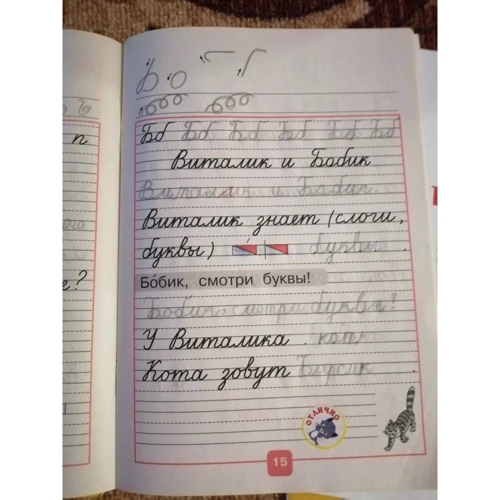 Б о Г
п Бб Бб Бб Бб Бб Бб
Виталик и Бобик
Виталик и Бобик
Виталик знает (слоги,
буквы) буквы .
Бобик, смотри буквы!
Бобик, смотри буквы!
У Виталика . коты
Кота зовут Барсик
ОТЛИЧНО
15